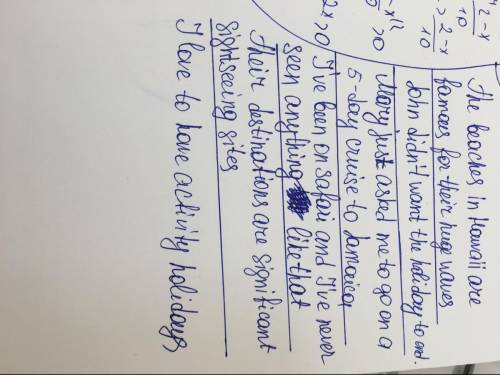 The beaches in Hawaii are
famous for their huge waves
John didn't want the holiday to end.
Mary just asked me to go on a
5-day cruise to Jamaica
I've been on safari and I've never
seen anything like that
Their destinations are significant
sightseeing sites
I love to have activity holidays
2-x
10
> 2-x
10
>0
2x>0